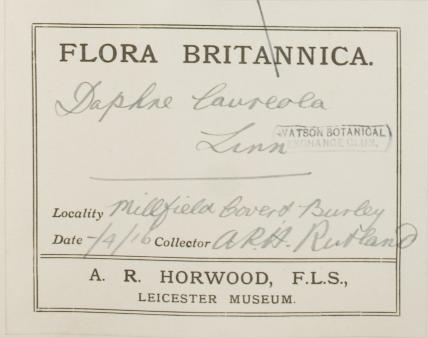 FLORA BRITANNICA.
Daphne laureola
Linn
WATSON BOTANICAL
EXCHANGE CLUB.
Locality Millfield Covert Burley
Date -/4/16 Collector A.R.H. Rutland
A. R. HORWOOD, F.L.S.,
LEICESTER MUSEUM.